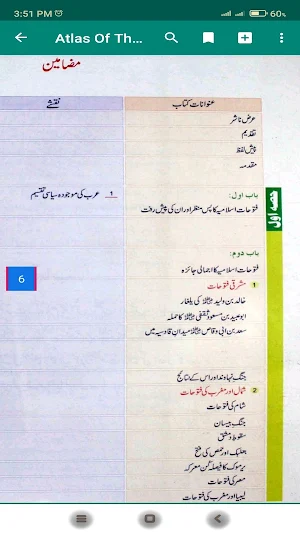 3:51 PM
60%
Atlas Of Th...
مضامین
عنوانات کتاب
نقشے
عرض ناشر
تقدیم
پیش لفظ
مقدمہ
حصہ اول
باب اول:
فتوحات اسلامیہ کا پس منظر اور ان کی پیش رفت
1 عرب کی موجودہ سیاسی تقسیم
باب دوم:
فتوحات اسلامیہ کا اجمالی جائزہ
1 مشرقی فتوحات
خالد بن ولید ؓ کی یلغار
ابوعبید بن مسعود ثقفی ؓ کا حملہ
سعد بن ابی وقاص ؓ میدان قادسیہ میں
6
جنگ نہاوند اور اس کے نتائج
2 شمال اور مغرب کی فتوحات
شام کی فتوحات
جنگ بیسان
سقوط دمشق
بعلبک اور حمص کی فتح
یرموک کا فیصلہ کن معرکہ
مصر کی فتوحات
لیبیا اور مغرب کی فتوحات